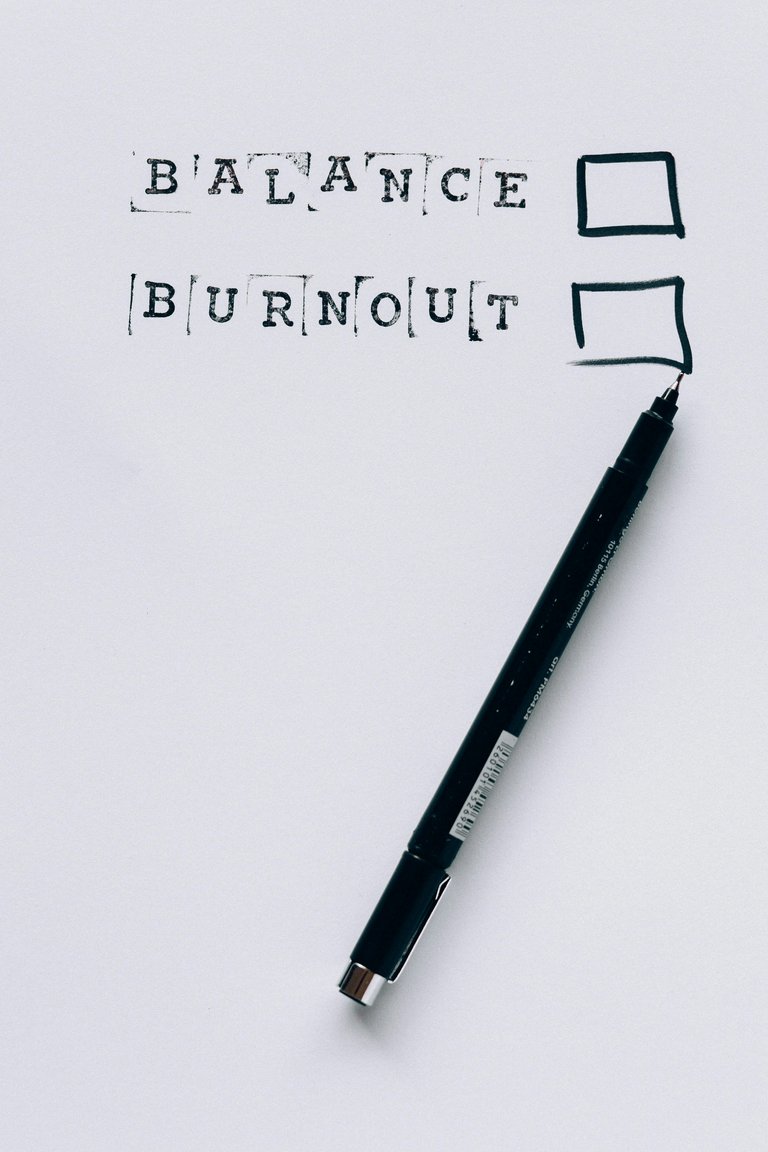 BALANCE
BURNOUT
10115 Berlin, Germany
Art. PM6434